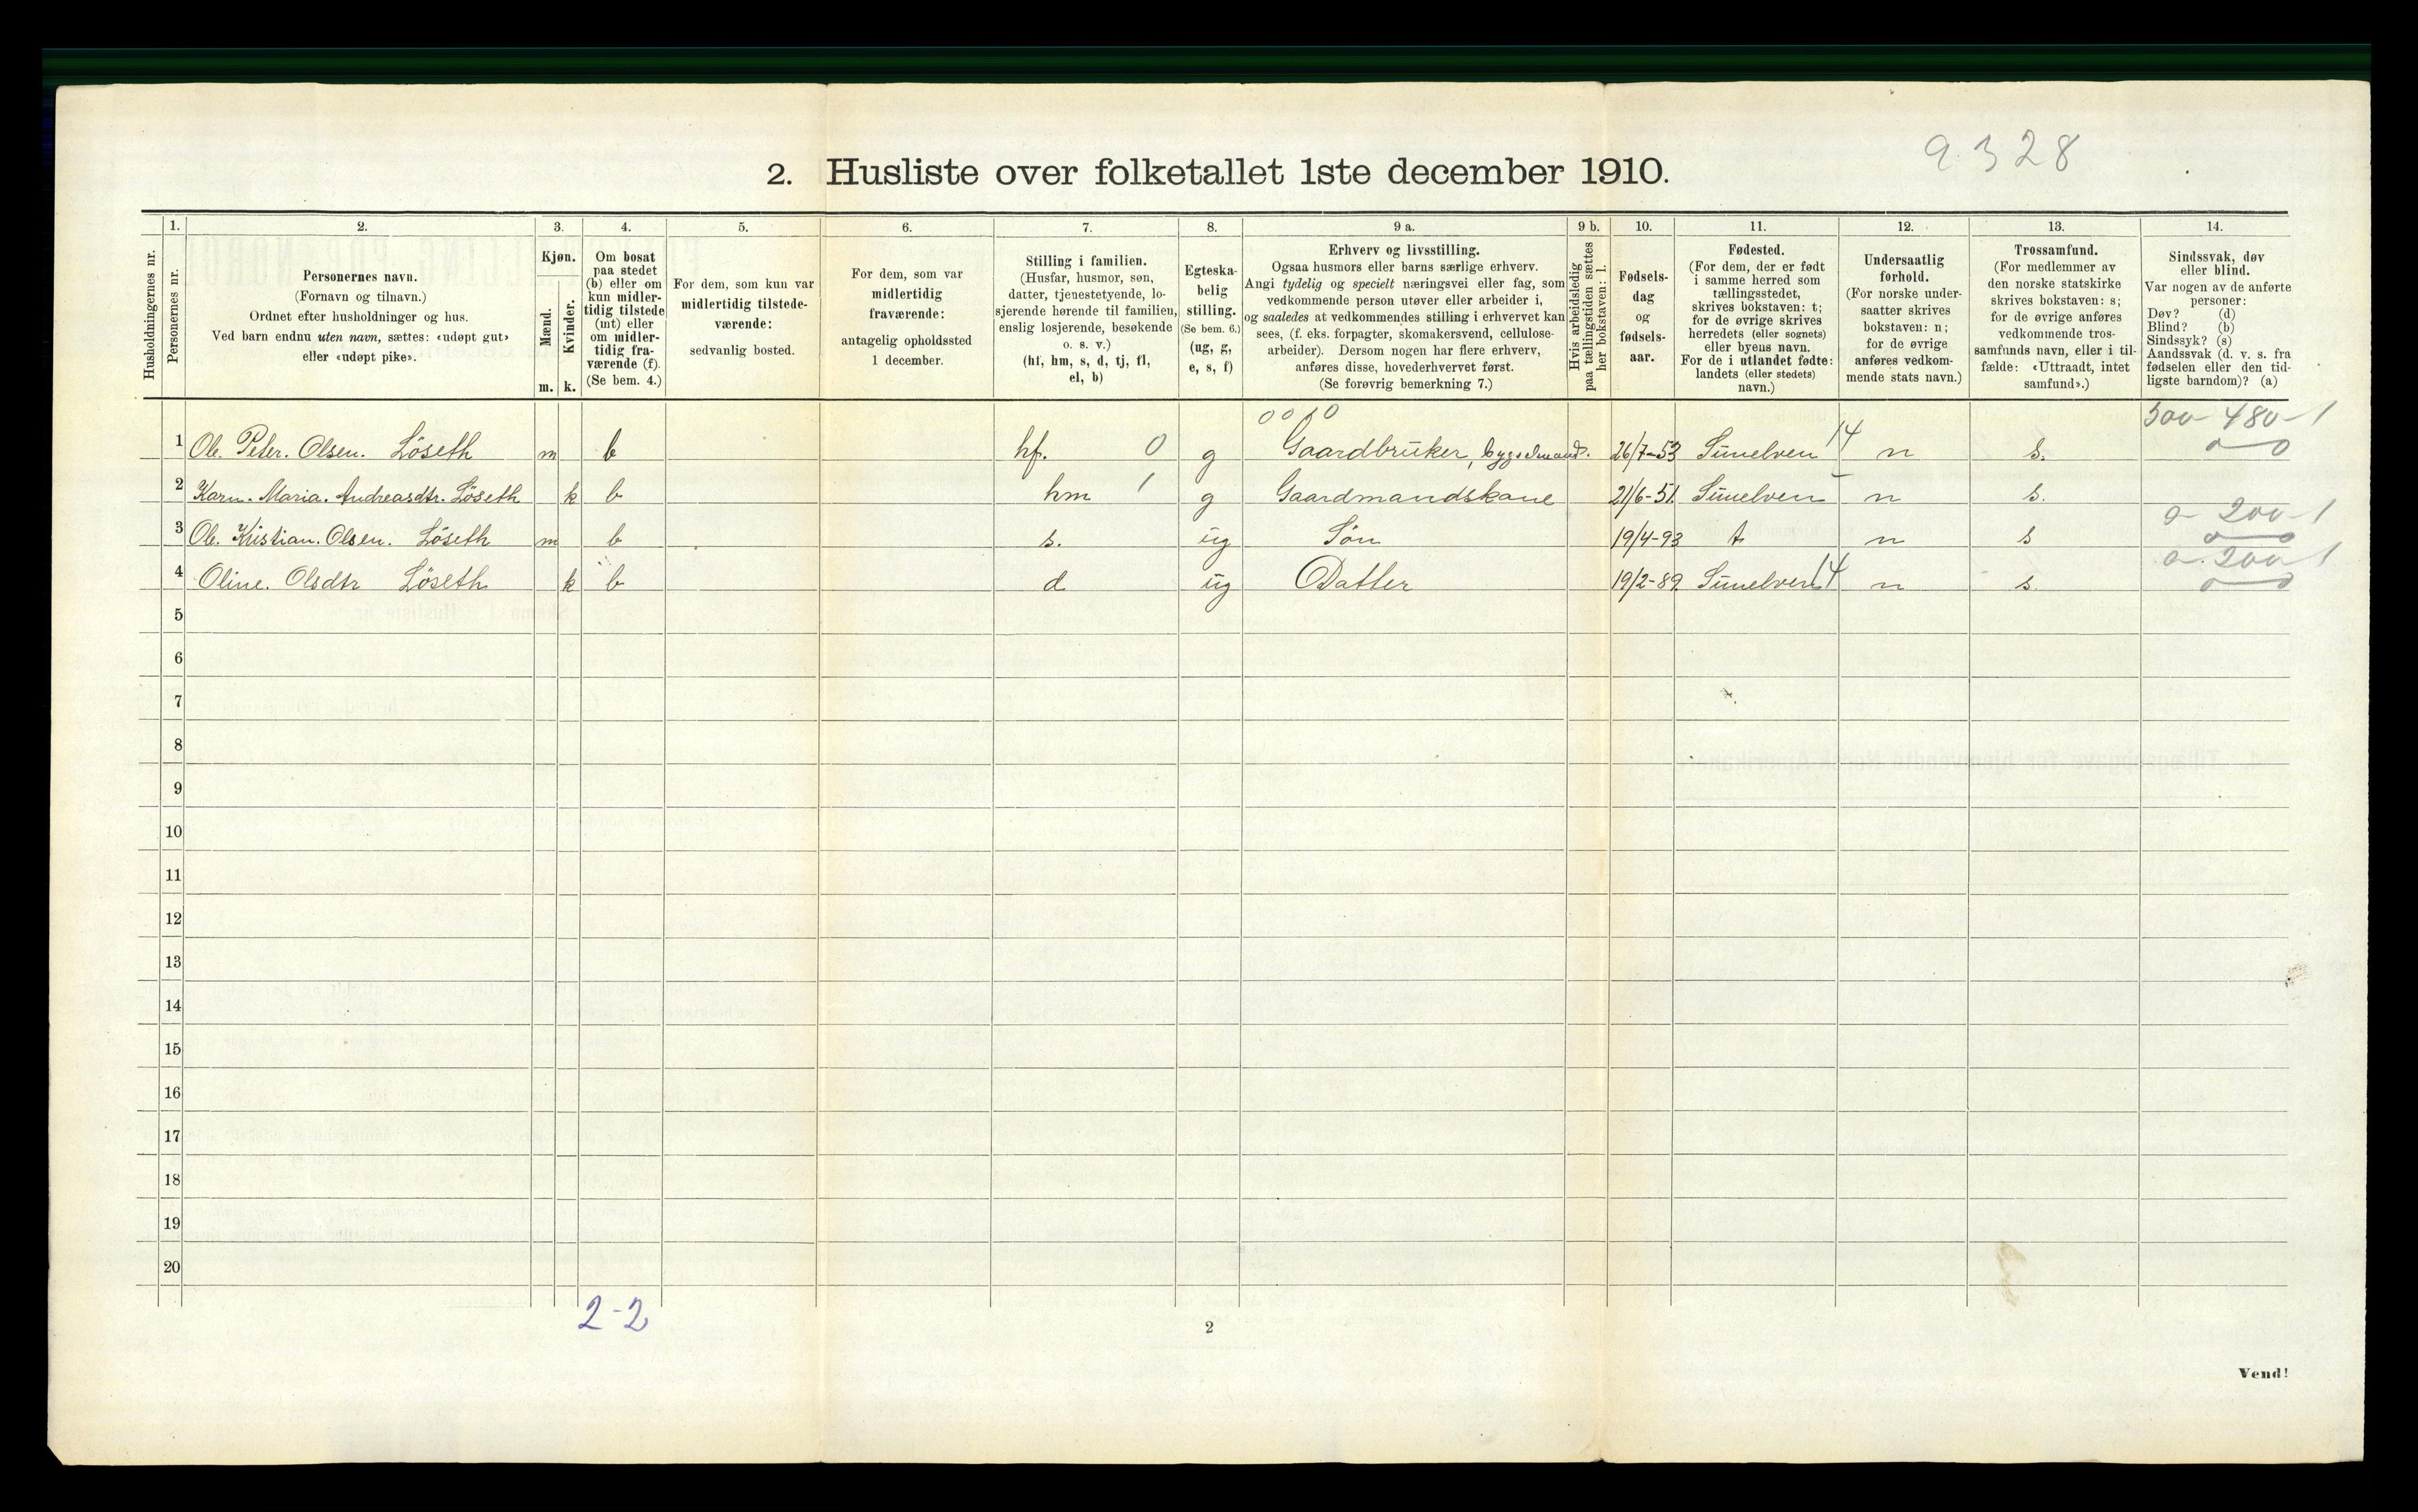 9328
2. Husliste over folketallet 1ste december 1910.
Husholdningernes nr.
1.
Personernes nr.
2.
Personernes navn.
(Fornavn og tilnavn.)
Ordnet efter husholdninger og hus.
Ved barn endnu uten navn, sættes: «udøpt gut»
eller «udøpt pike».
3.
Kjøn.
Mænd.
Kvinder.
m. k.
4.
Om bosat
paa stedet
(b) eller om
kun midler-
tidig tilstede
(mt) eller
om midler-
tidig fra-
værende (f).
(Se bem. 4.)
5.
For dem, som kun var
midlertidig tilstede-
værende:
sedvanlig bosted.
6.
For dem, som var
midlertidig
fraværende:
antagelig opholdssted
1 december.
7.
Stilling i familien.
(Husfar, husmor, søn,
datter, tjenestetyende, lo-
sjerende hørende til familien,
enslig losjerende, besøkende
o. s. v.)
(hf, hm, s, d, tj, fl,
el, b)
8.
Egteska-
belig
stilling.
(Se bem. 6.)
(ug, g,
e, s, f)
9 a.
Erhverv og livsstilling.
Ogsaa husmors eller barns særlige erhverv.
Angi tydelig og specielt næringsvei eller fag, som
vedkommende person utøver eller arbeider i,
og saaledes at vedkommendes stilling i erhvervet kan
sees, (f. eks. forpagter, skomakersvend, cellulose-
arbeider). Dersom nogen har flere erhverv,
anføres disse, hovederhvervet først.
(Se forøvrig bemerkning 7.)
9 b.
Hvis arbeidsledig
paa tællingstiden sættes
her bokstaven: l.
10.
Fødsels-
dag
og
fødsels-
aar.
11.
Fødested.
(For dem, der er født
i samme herred som
tællingsstedet,
skrives bokstaven: t;
for de øvrige skrives
herredets (eller sognets)
eller byens navn.
For de i utlandet fødte:
landets (eller stedets)
navn.)
12.
Undersaatlig
forhold.
(For norske under-
saatter skrives
bokstaven: n;
for de øvrige
anføres vedkom-
mende stats navn.)
13.
Trossamfund.
(For medlemmer av
den norske statskirke
skrives bokstaven: s;
for de øvrige anføres
vedkommende tros-
samfunds navn, eller i til-
fælde: «Uttraadt, intet
samfund».)
14.
Sindssvak, døv
eller blind.
Var nogen av de anførte
personer:
Døv? (d)
Blind? (b)
Sindssyk? (s)
Aandssvak (d. v. s. fra
fødselen eller den tid-
ligste barndom)? (a)
500-480-1
1 Ole Peter. Olsen. Löseth m b hf. 0 g Gaardbruker, bygselmand. 26/7-53 Sunelven 14 n s.
2 Karn. Maria. Andreasdtr. Löseth k b hm 1 g Gaardmandskone 21/6-51. Sunelven n s.
0-200-1
3 Ole. Kristian. Olsen. Löseth m b s. ug Søn 19/4-93 t n s
0-200-1
4 Oline. Olsdtr Löseth k b d ug Datter 19/2-89. Sunelven 14 n s.
5
6
7
8
9
10
11
12
13
14
15
16
17
18
19
20
2-2
2
Vend!